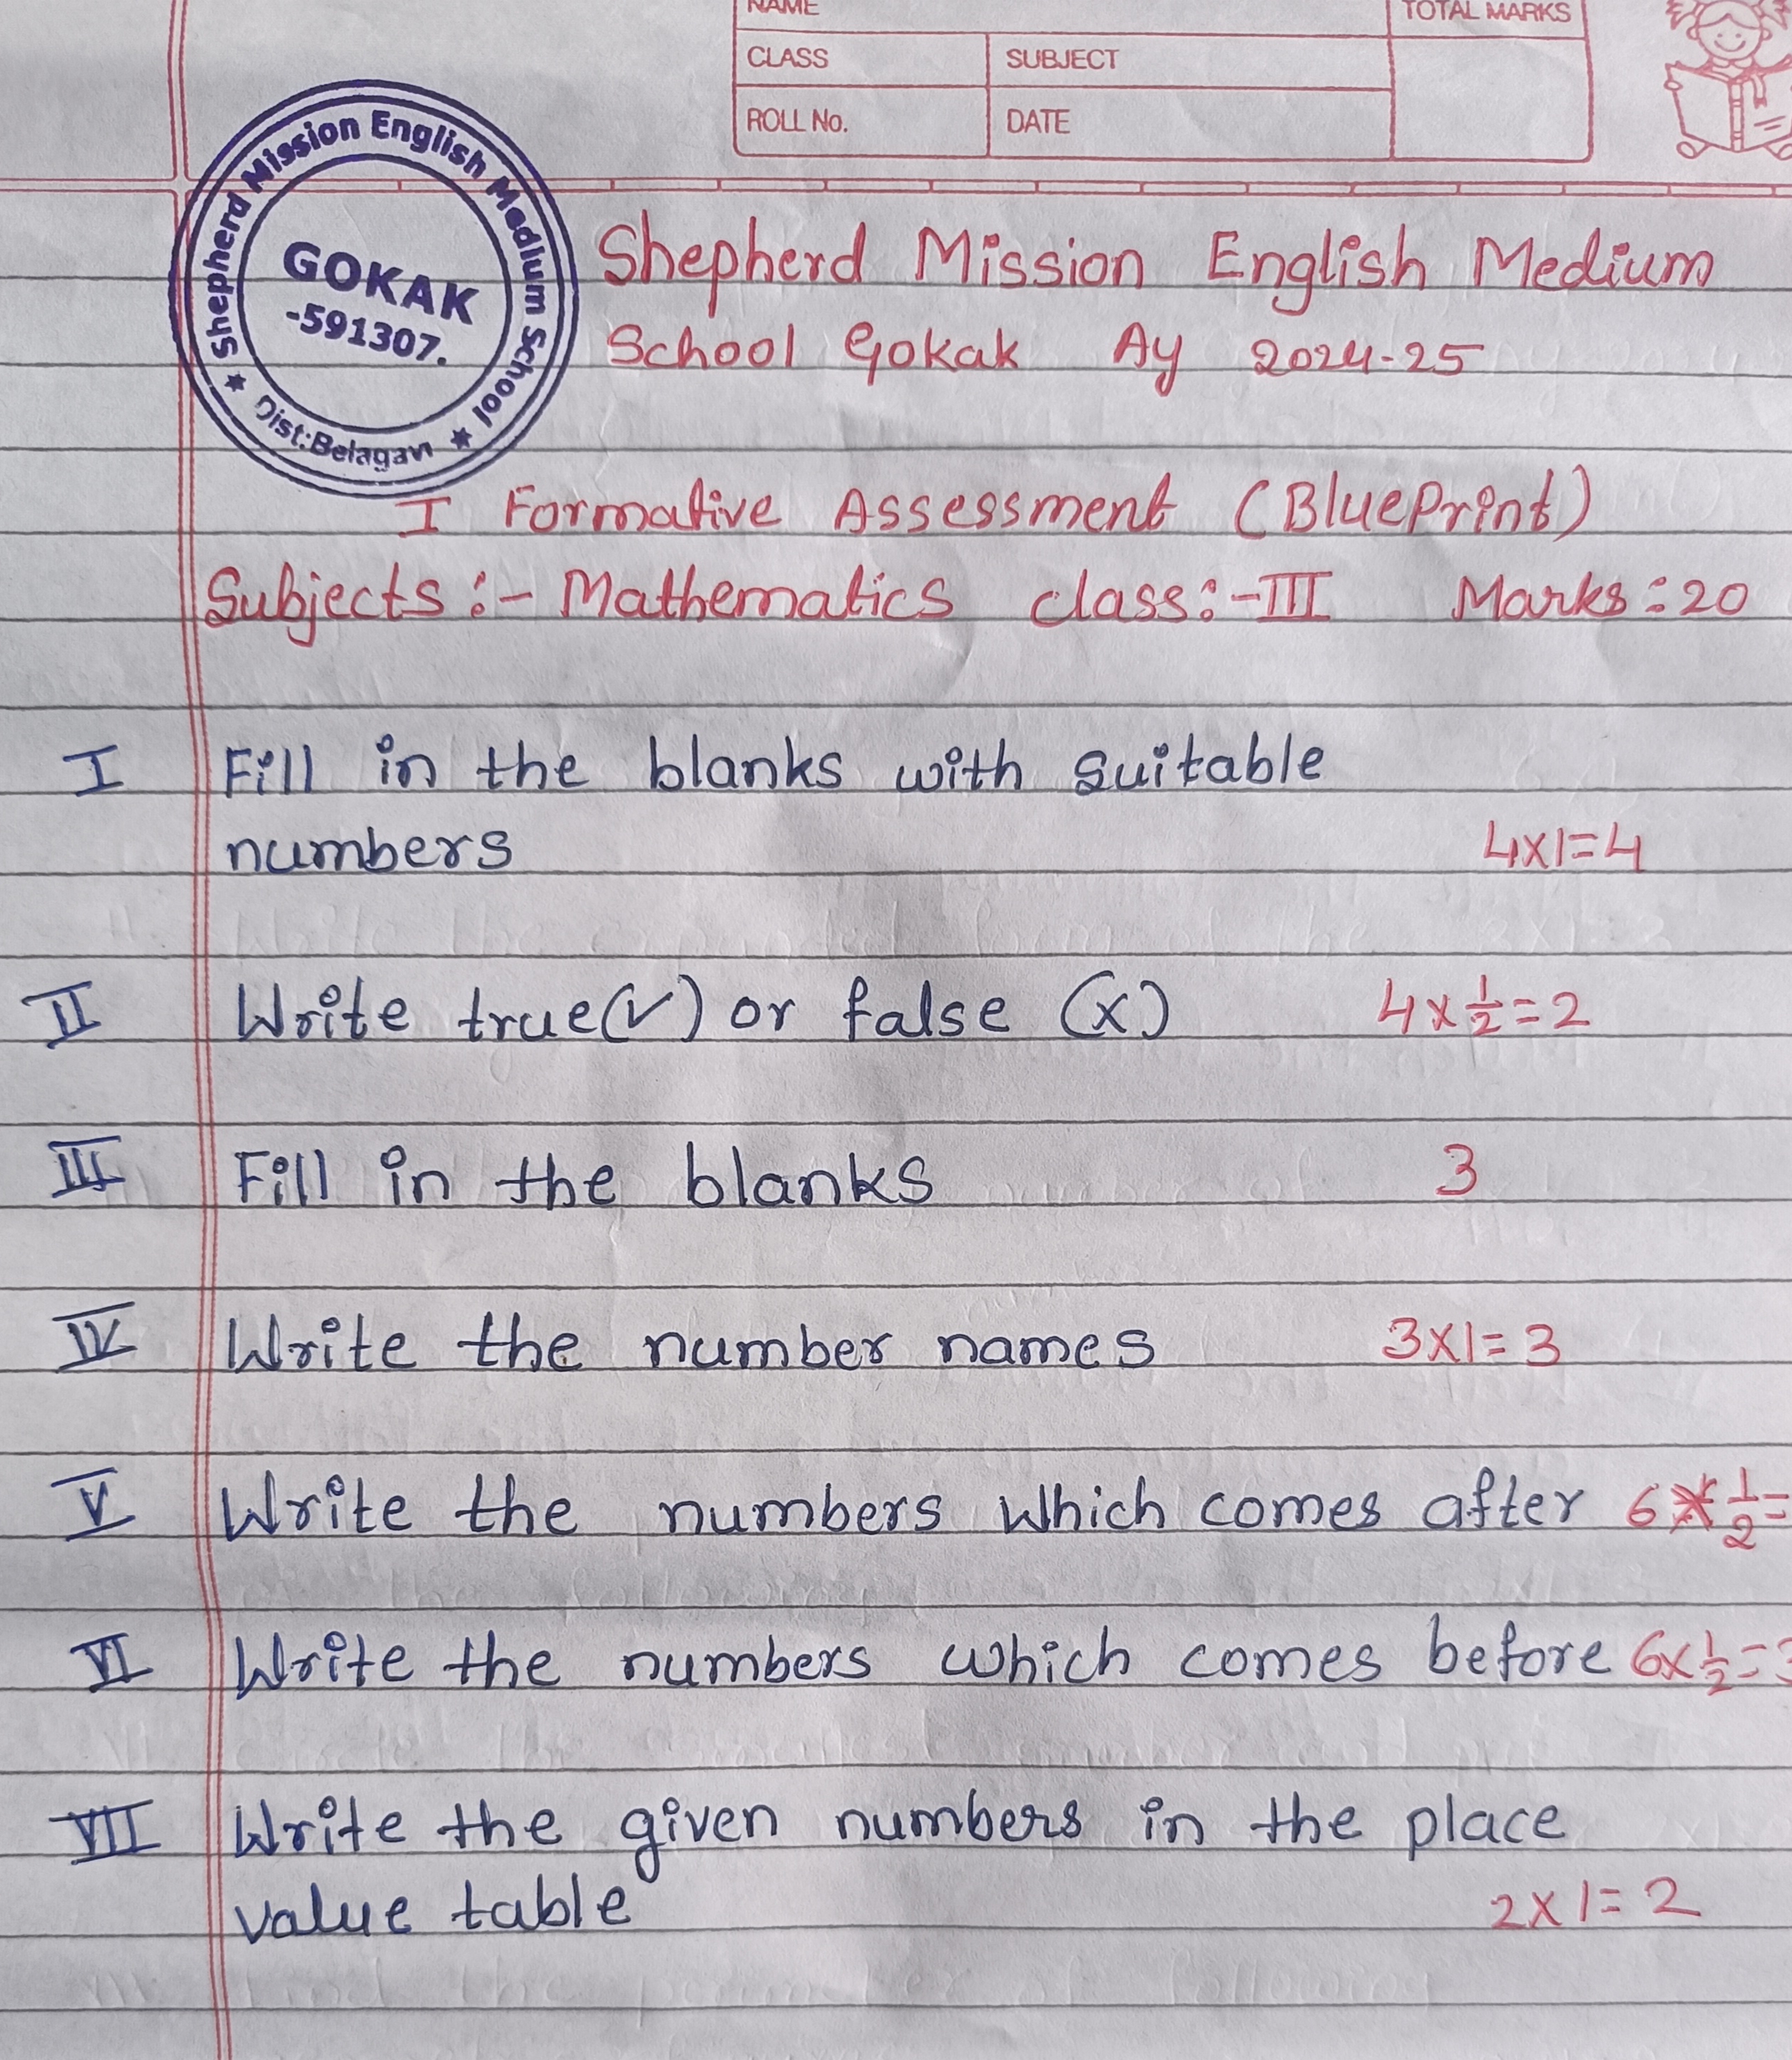 NAME
TOTAL MARKS
CLASS
SUBJECT
ROLL No.
DATE
Shepherd Mission English Medium School
GOKAK
-591307.
★ Dist:Belagavi ★
Shepherd Mission English Medium
School Gokak Ay 2024-25
I Formative Assessment (BluePrint)
Subjects :- Mathematics class:-III Marks:20
I Fill in the blanks with suitable
numbers 4x1=4
II Write true(✓) or false (x) 4x½=2
III Fill in the blanks 3
IV Write the number names 3x1=3
V Write the numbers which comes after 6x½=
VI Write the numbers which comes before 6x½=3
VII Write the given numbers in the place
value table 2x1=2